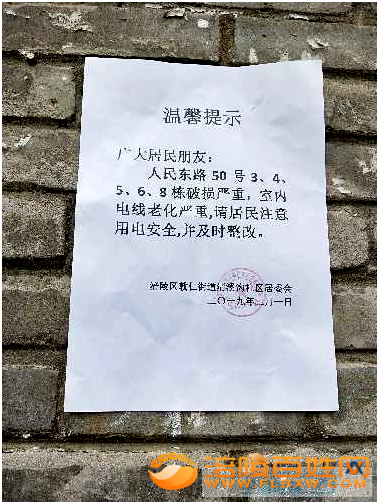 温馨提示
广大居民朋友：
人民东路 50 号 3、4、
5、6、8 栋破损严重，室内
电线老化严重,请居民注意
用电安全,并及时整改。
涪陵区敦仁街道 社区居委会
二〇一九年二月一日
涪陵百姓网
WWW.FLBXW.COM